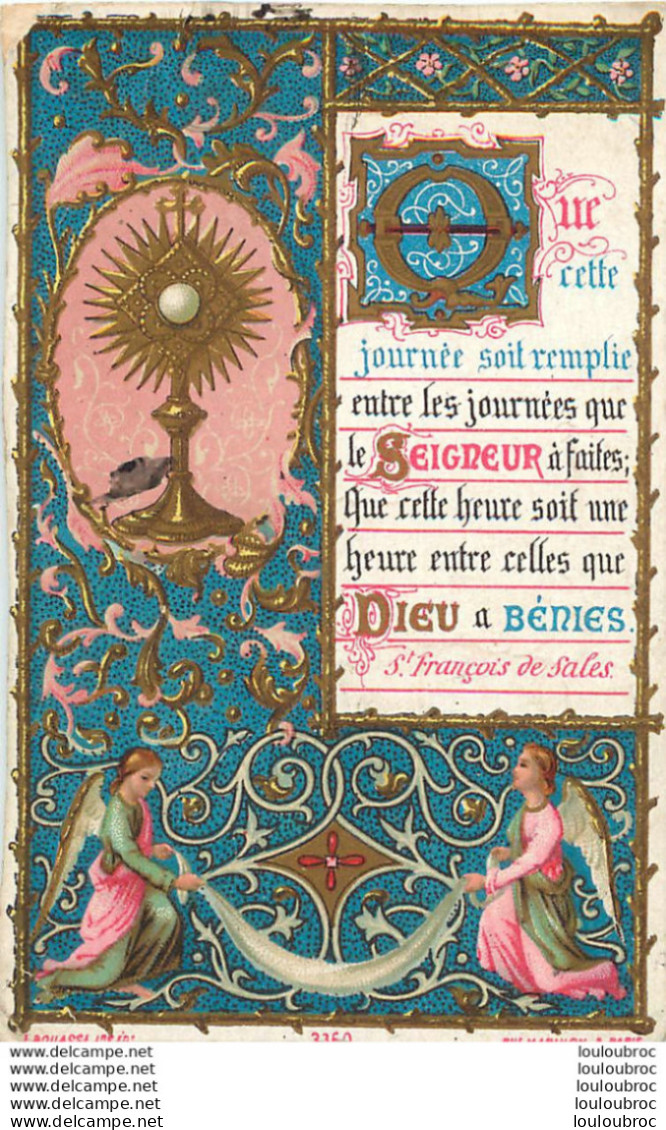 Que
cette
journée soit remplie
entre les journées que
le SEIGNEUR à faites;
Que cette heure soit une
heure entre celles que
DIEU a BÉNIES.
St François de Sales.
3360
www.delcampe.net
www.delcampe.net
www.delcampe.net
www.delcampe.net
www.delcampe.net
louloubroc
louloubroc
louloubroc
louloubroc
louloubroc